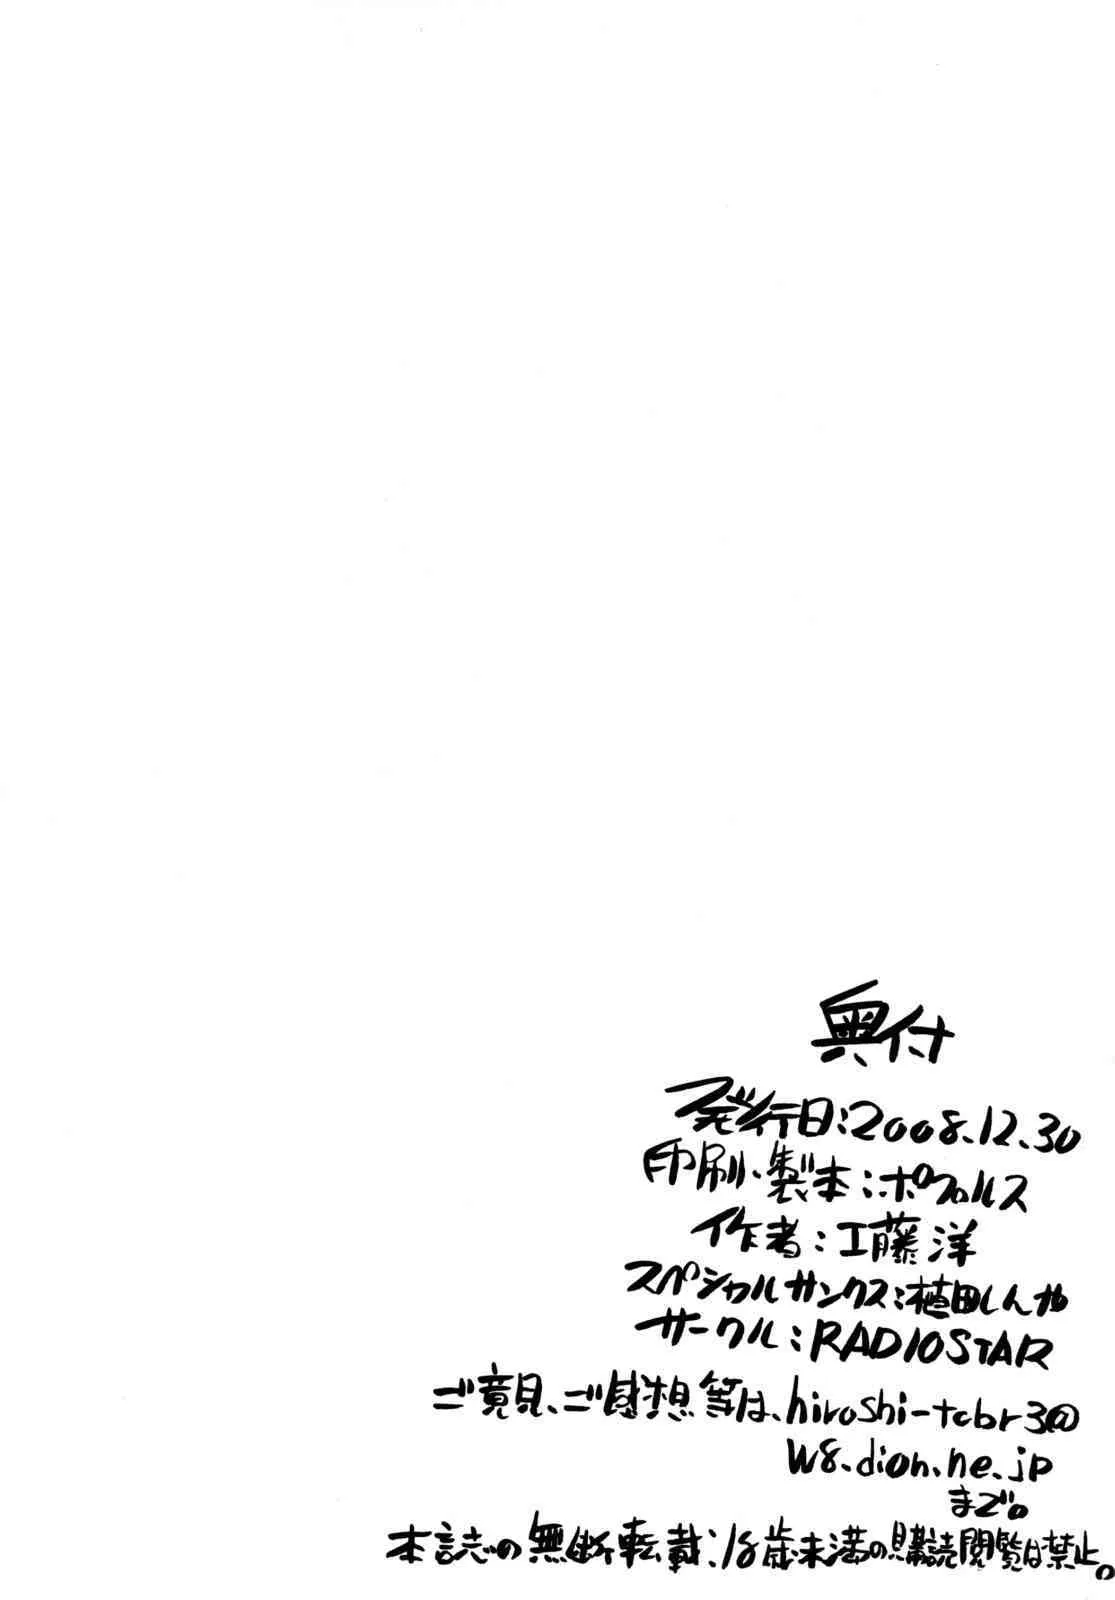 奥付
発行日:2008.12.30
印刷、製本:ポプルス
作者:工藤洋
スペシャルサンクス:植田しんや
サークル:RADIOSTAR
ご意見、ご感想等は、hiroshi-tcbr3@
w8.dion.ne.jp
まで。
本誌の無断転載:18歳未満の購読閲覧は禁止。